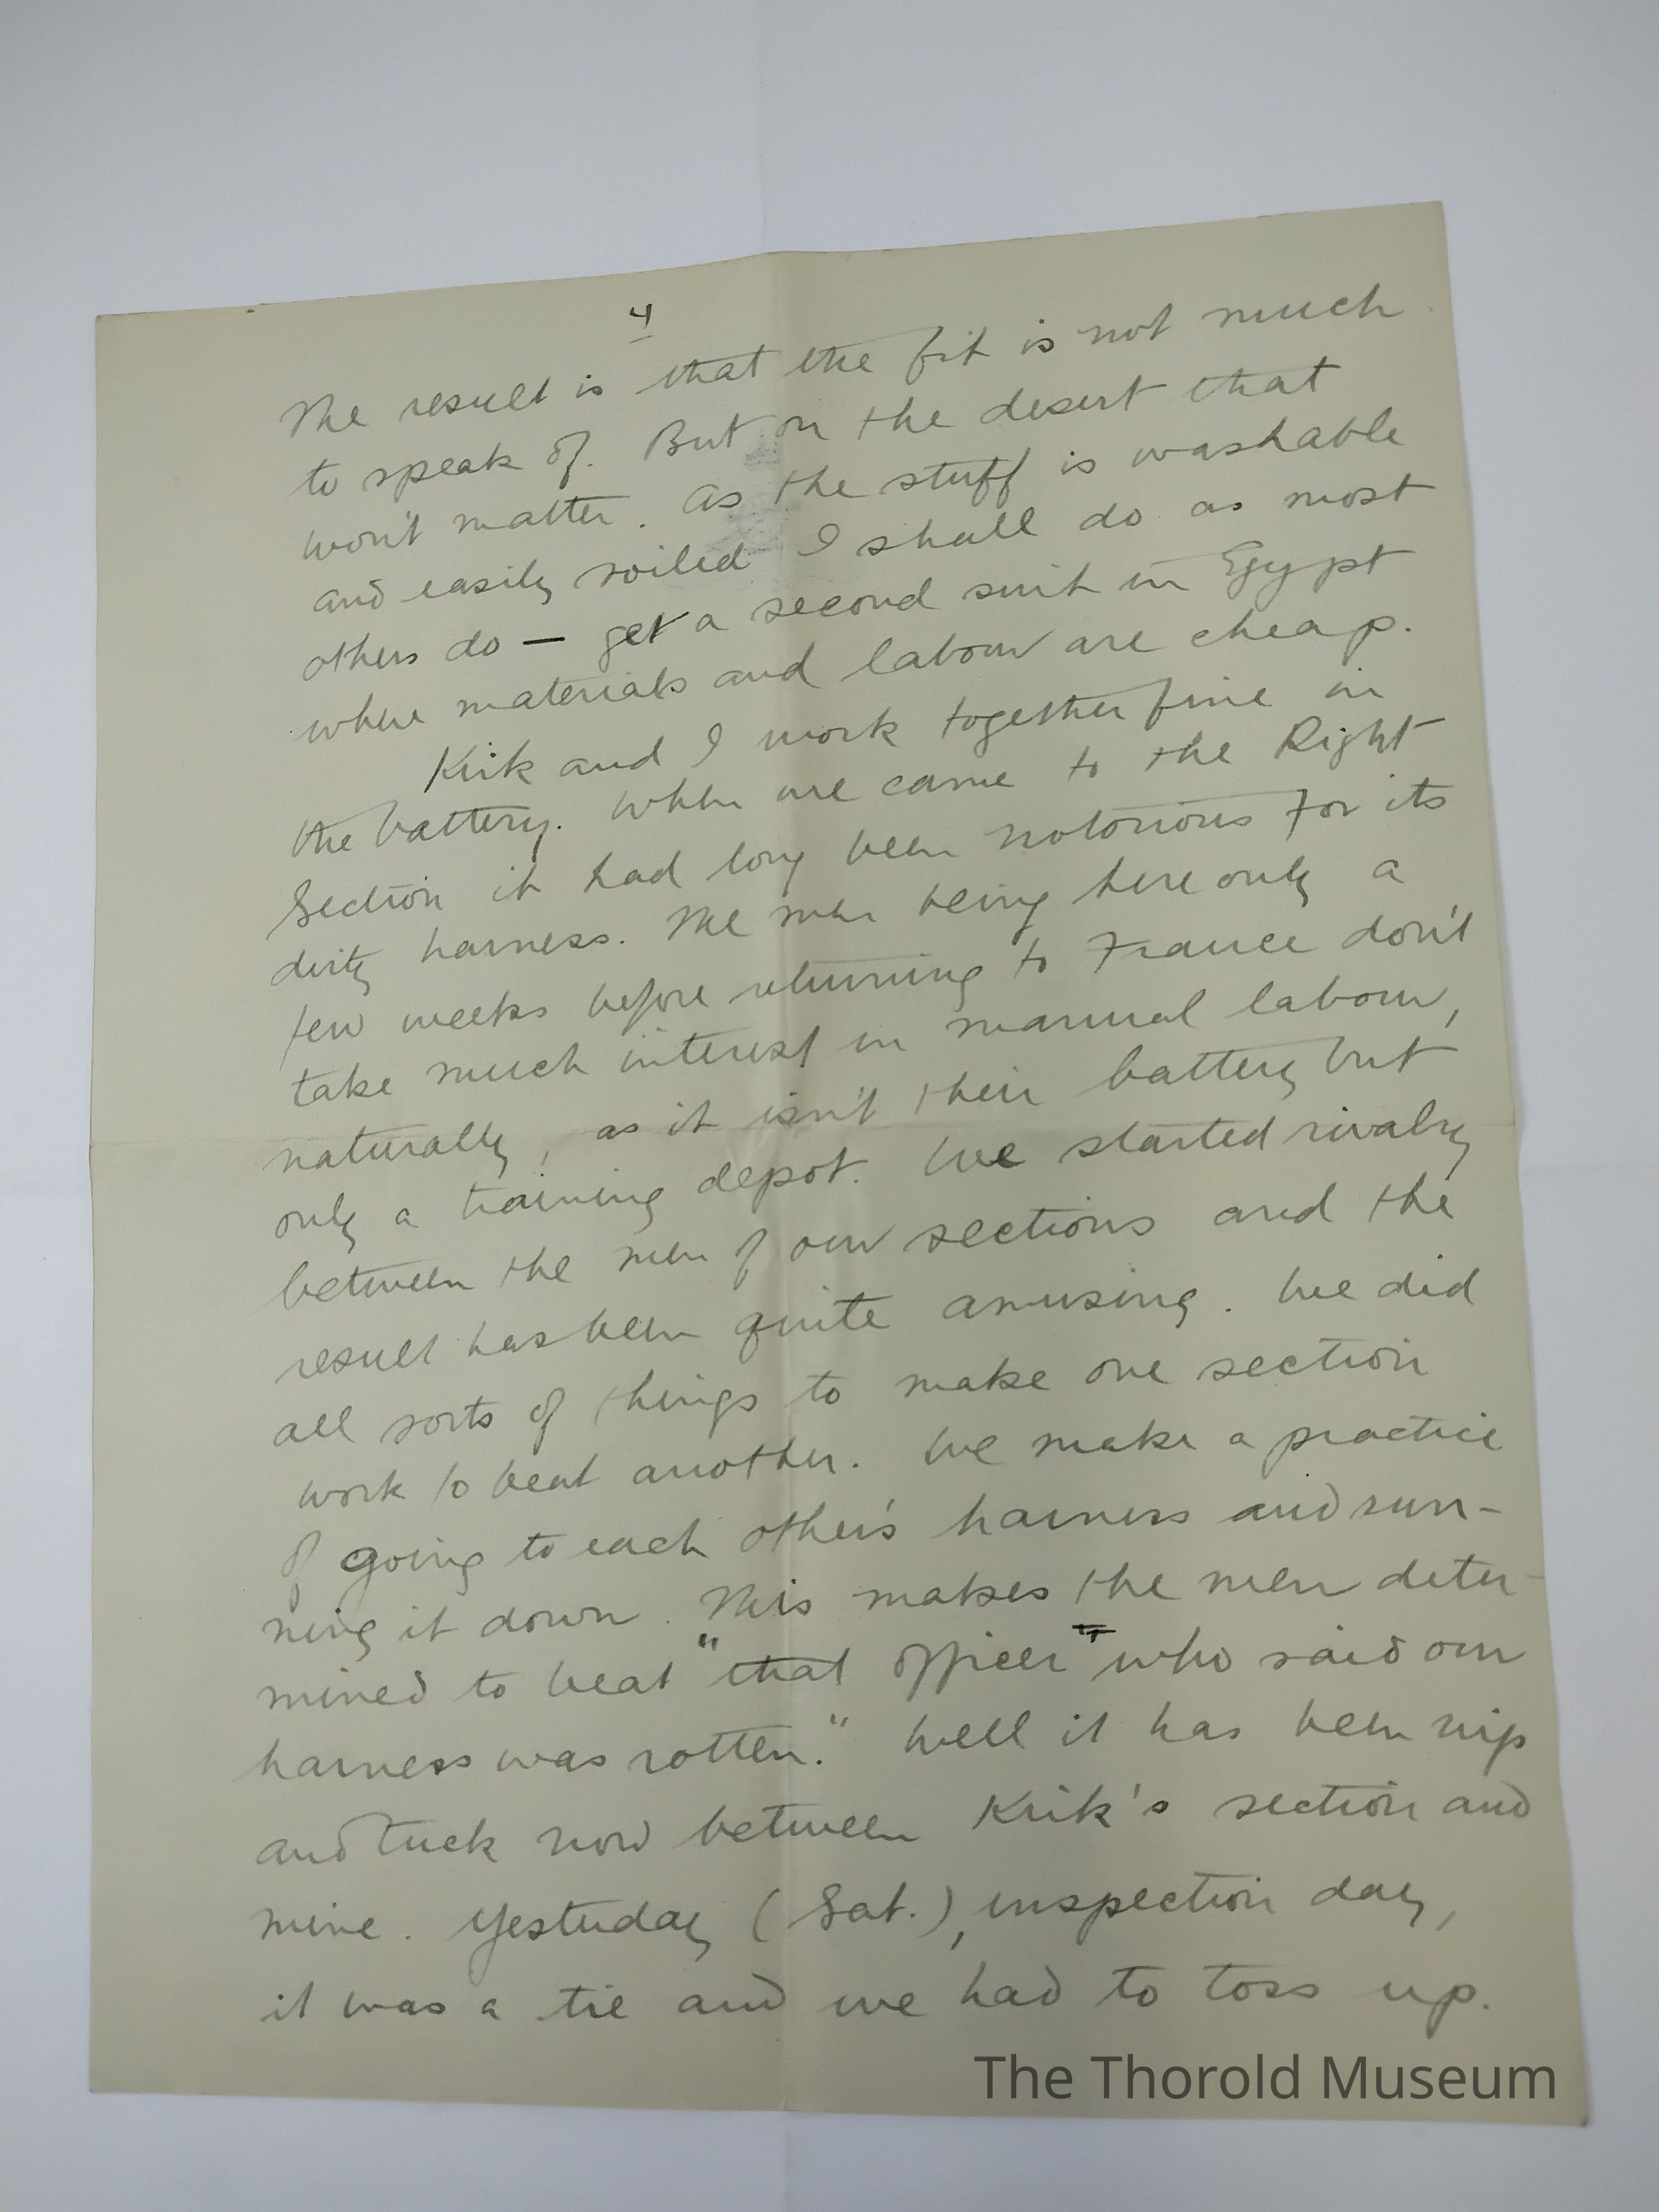 4
The result is that the fit is not much
to speak of. But on the desert that
won't matter. As the stuff is washable
and easily soiled I shall do as most
others do — get a second suit in Egypt
where materials and labour are cheap.
Kirk and I work together fine in
the battery. When we came to the Right
Section it had long been notorious for its
dirty harness. The men being here only a
few weeks before returning to France don't
take much interest in manual labour,
naturally, as it isn't their battery but
only a training depot. We started rivalry
between the men of our sections and the
result has been quite amusing. We did
all sorts of things to make one section
work to beat another. We make a practice
of going to each other's harness and run-
ning it down. This makes the men deter-
mined to beat "that officer" who said our
harness was rotten." Well it has been nip
and tuck now between Kirk's section and
mine. Yesterday (Sat.), inspection day,
it was a tie and we had to toss up.
The Thorold Museum